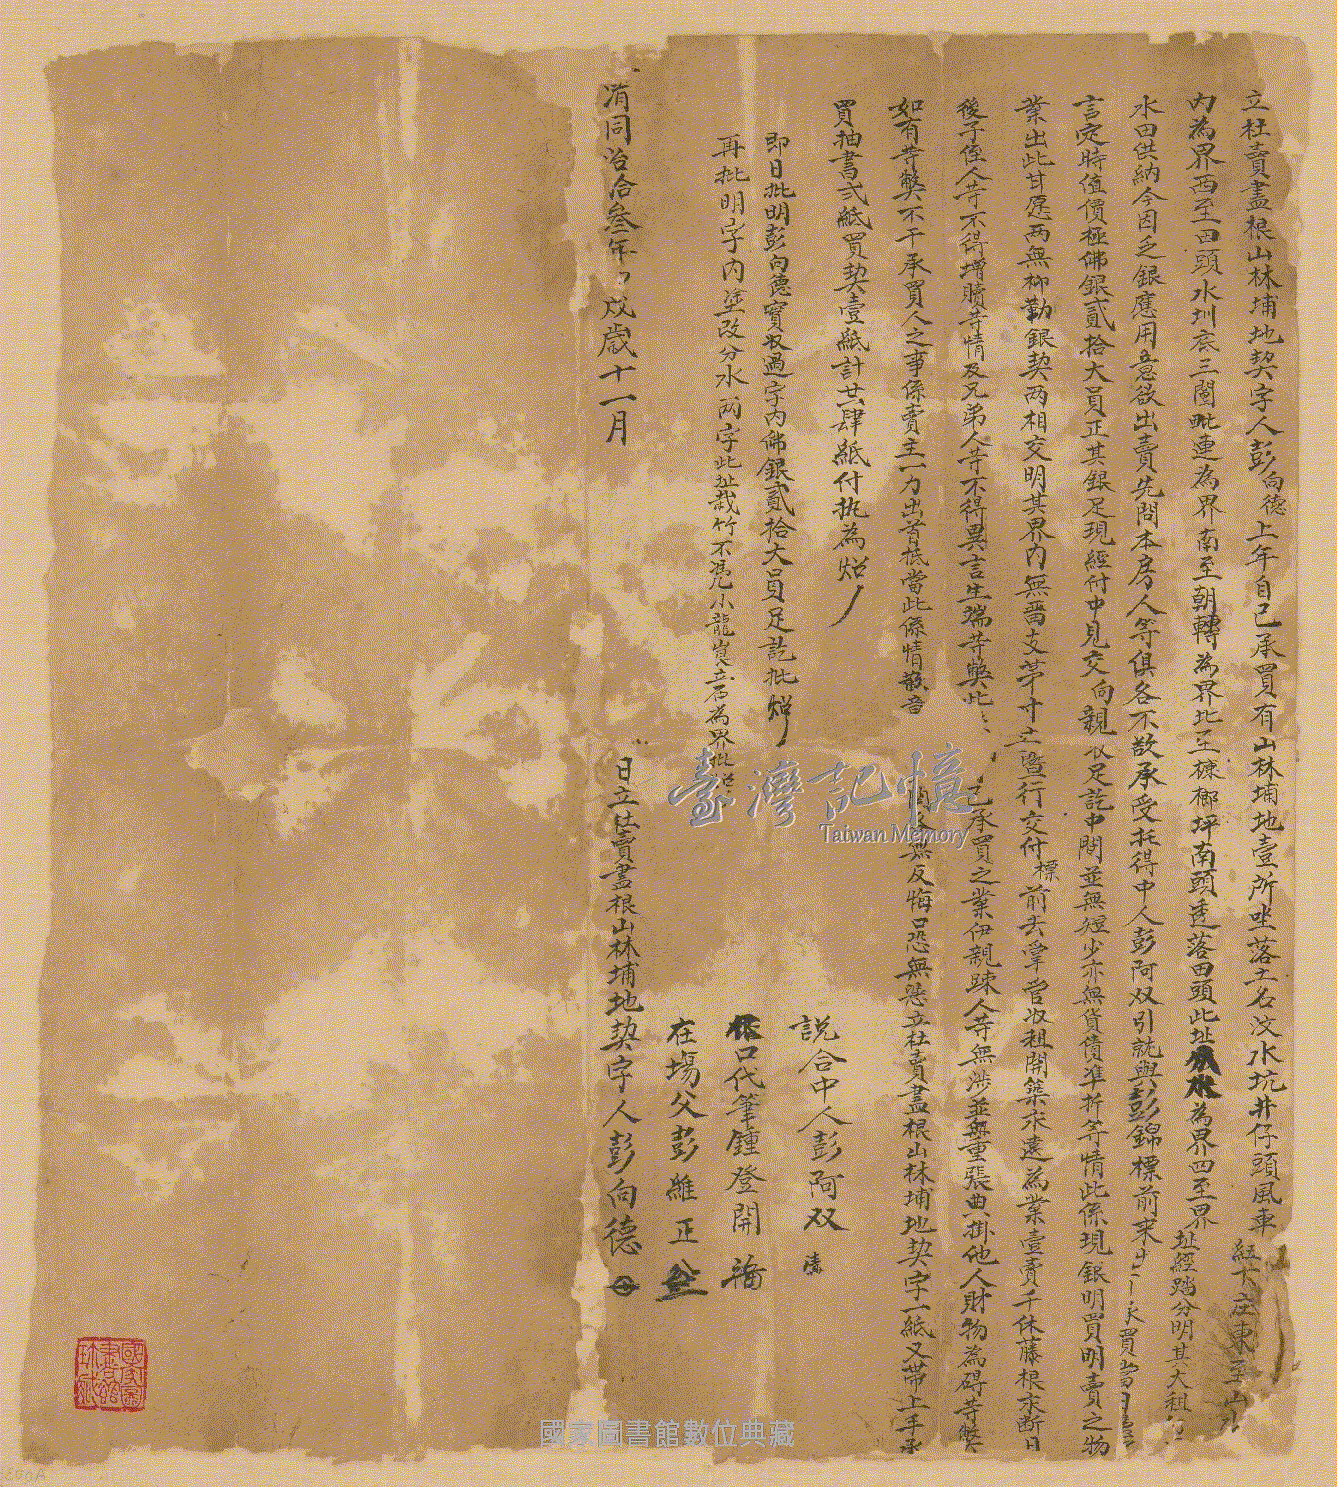 立杜賣盡根山林埔地契字人彭向德上年自己承買有山林埔地壹所坐落土名汶水坑井仔頭風車 紅下庄東至山
內為界西至田頭水圳底三鬮毗連為界南至朝轉為界北至檳榔坪南頭透落田頭此址為界四至界址經踏分明其大租
水田供納今因乏銀應用意欲出賣先問本房人等俱各不欲承受托得中人彭阿双引就與彭錦標前來承買當日
言定時值價極佛銀貳拾大員正其銀足現經付中見交向親收足訖中間並無短少亦無貨債准折等情此係現銀明買明賣之物
業出此甘愿两無抑勒銀契两相交明其界內無留支草寸土暨行交付標前去掌管收租開築永遠為業壹賣千休藤根永斷日
後子侄人等不得增贖等情及兄弟人等不得異言生端等弊此 己承買之業伊親踈人等無涉並無重張典掛他人財物為碍等弊
如有等弊不干承買人之事係賣主一力出首抵當此係情 無反悔口恐無憑立杜賣盡根山林埔地契字一紙又帶上手承
買抽書弍紙買契壹紙計共肆紙付执為炤
即日批明彭向德實收過字內佛銀貳拾大員足訖批炤
再批明字內塗改分水两字此址栽竹不憑小龍崀立石為界批炤
說合中人彭阿双
依口代筆鍾登開
在塲父彭維正
同治拾叁年 戌歲十一月 日立杜賣盡根山林埔地契字人彭向德
臺灣記憶
Taiwan Memory
國家圖書館數位典藏